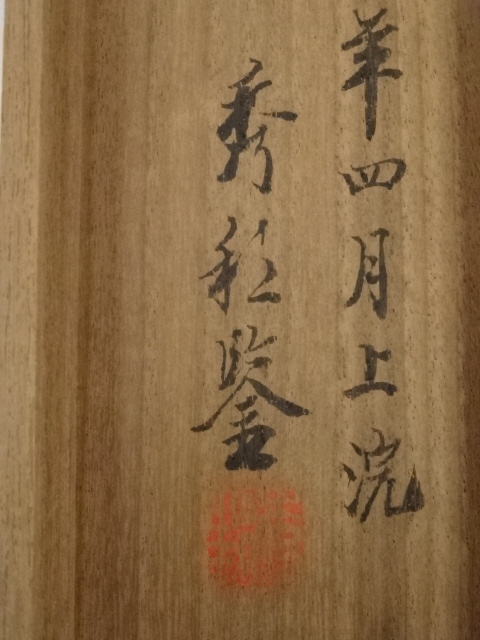 年四月上浣
秀鑒